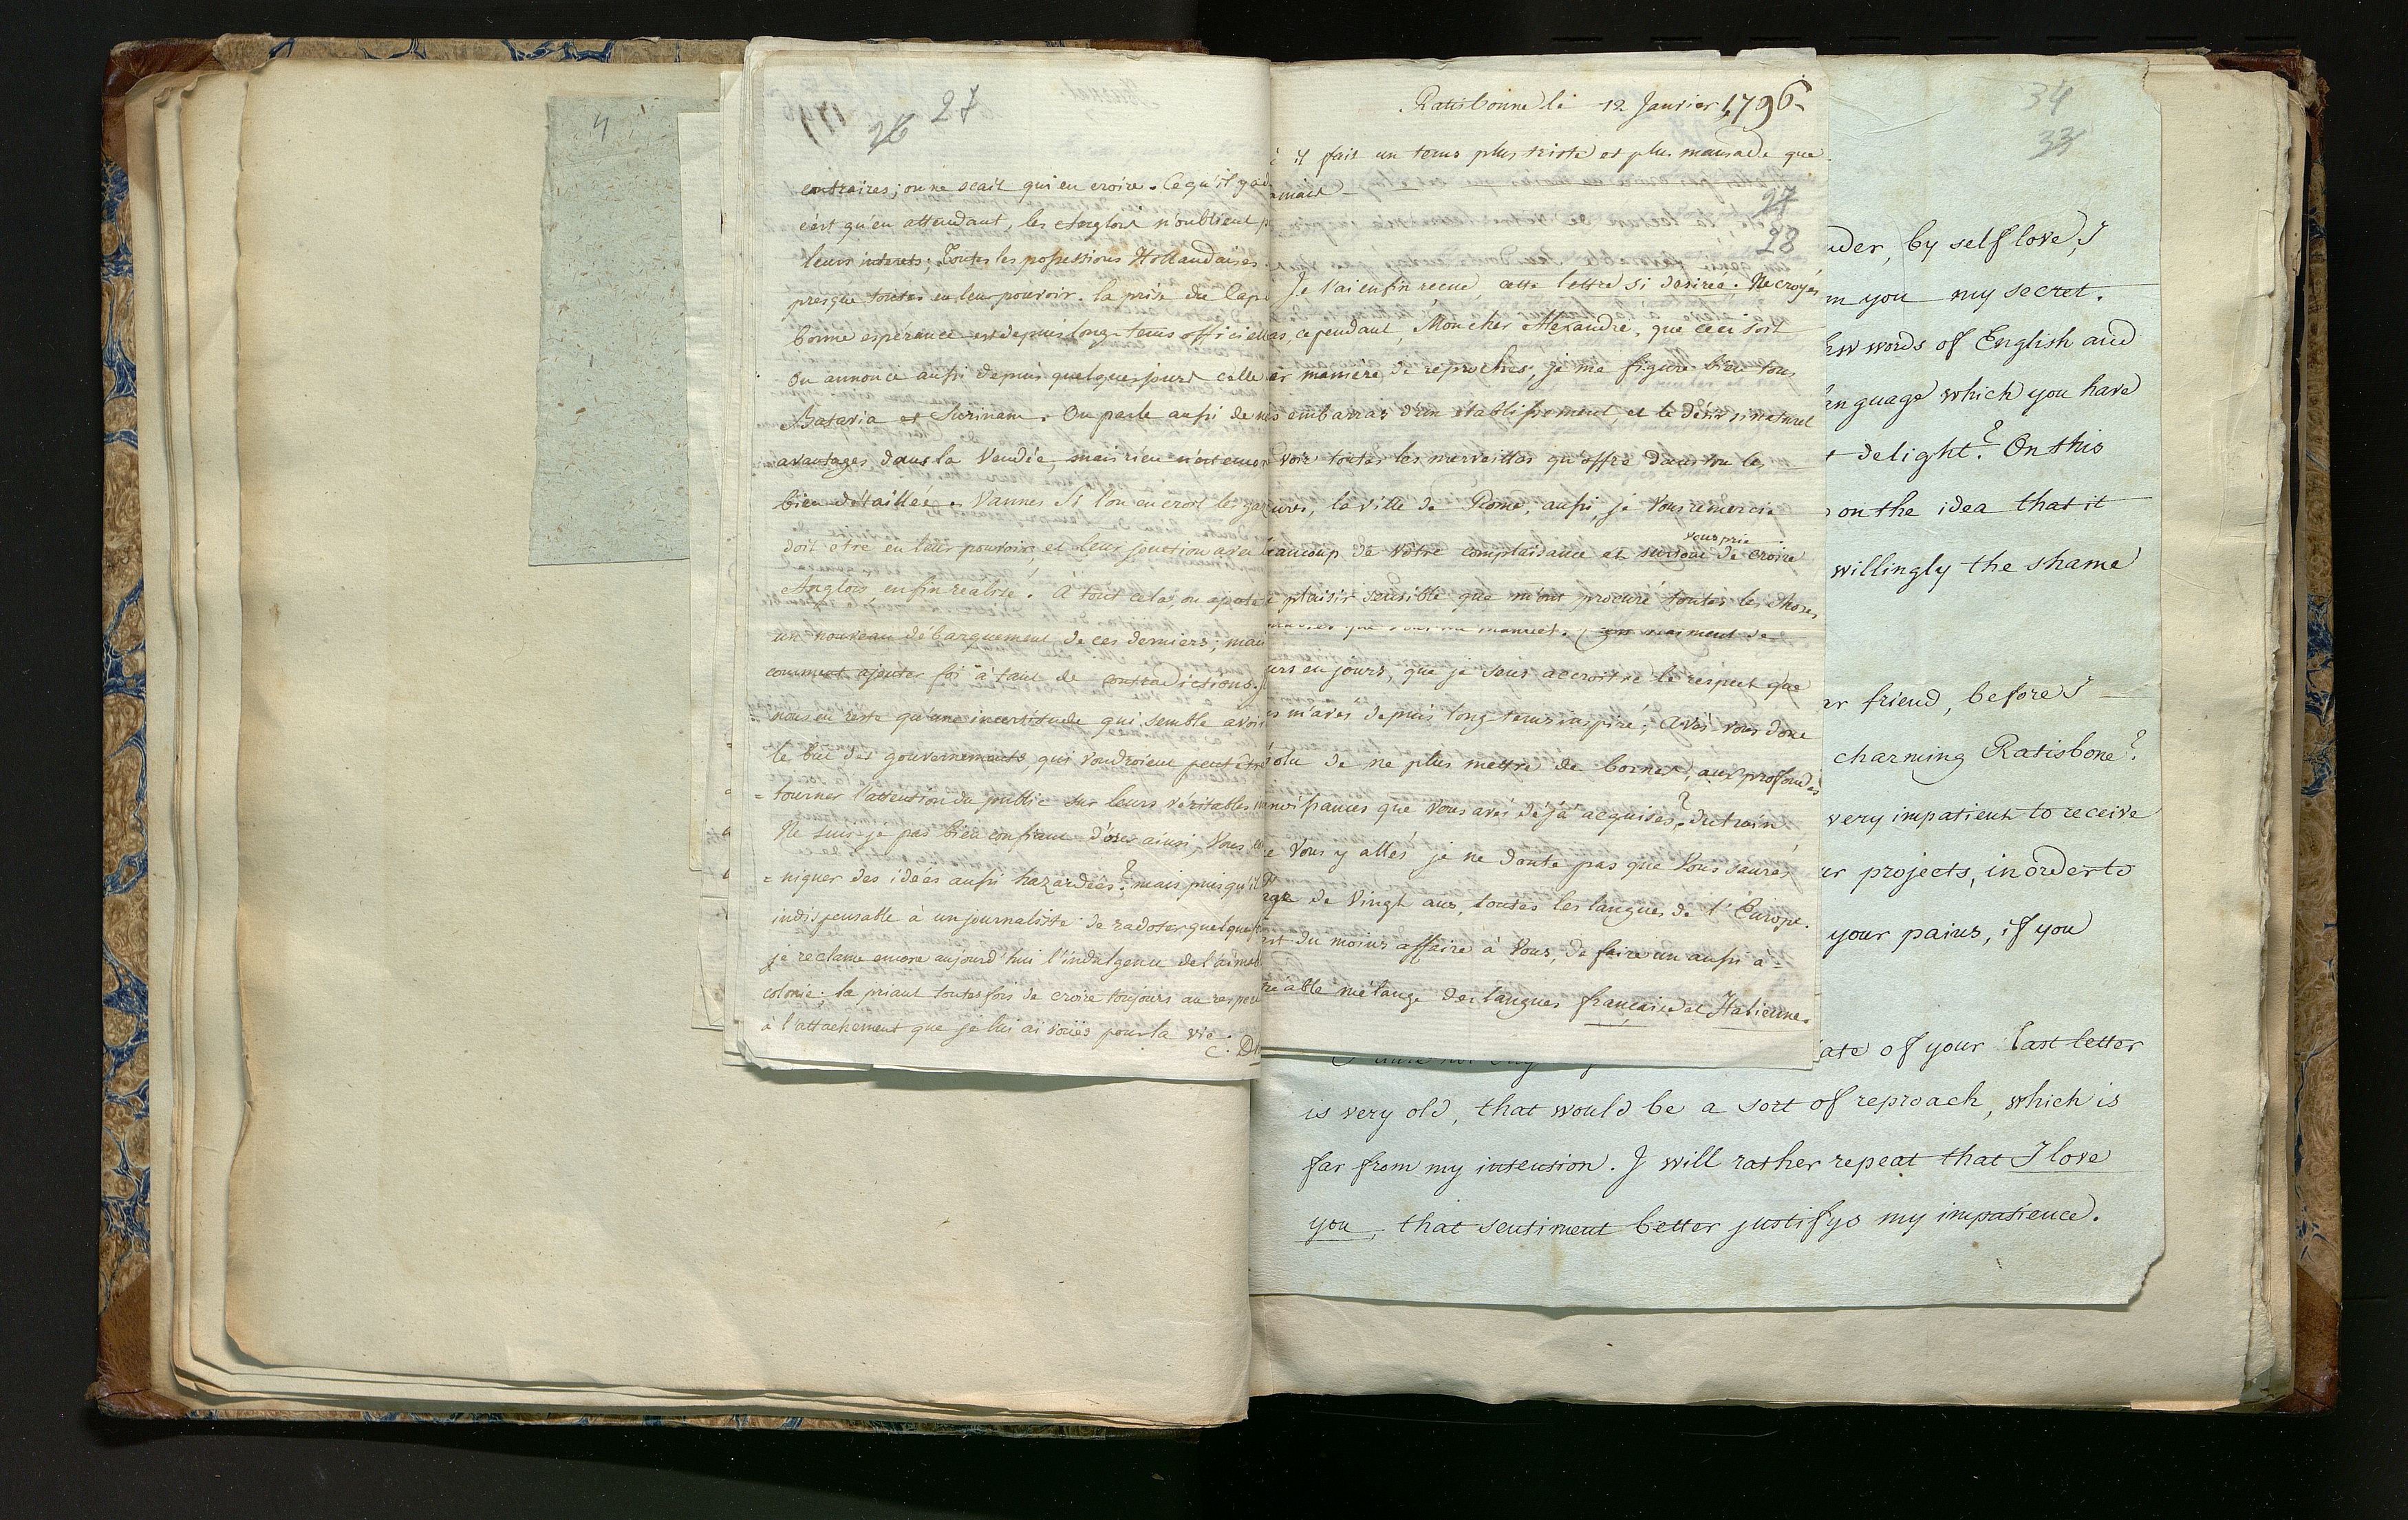 4
27
26
contraires; on ne scait qui en croire. Ce qu'il y a
c'est qu'en attendant, les Anglois n'oublient
leurs interets; Toutes les possessions Hollandaises
presque toutes en leur pouvoir. la prise du Cap
bonne espérance est depuis long-tems officiel
On annonce aussi depuis quelques jours celle
Batavia et Surinam. On parle aussi de
avantages dans la Vendée, mais rien n'est
bien détaillée. Vannes si l'on en croit les
doit etre en leur pouvoir, et leur jonction avec
Anglois, enfin réalisé. à tout cela, on ajoute
un nouveau débarquement de ces derniers; mais
comment ajouter foi à tant de contradictions.
nous en reste qu'une incertitude qui semble avoir
le but des gouvernements, qui voudroient peut être
= tourner l'attention du public sur leurs véritables
Ne suis-je pas bien confiant d'oser ainsi, Vous
= niquer des idées aussi hazardées? mais puisqu'il
indispensable à un journaliste de radoter
je reclame encore aujourd'hui l'indulgence de
colonie. la priant toutes fois de croire toujours au
à l'attachement que je lui ai voués pour la vie.
C.
Ratisbonne le 12 Janvier 1796
il fait un tems plus triste et plus mausade que
27
28
Je l'ai enfin recue, cette lettre si desirée. Ne croyés
cependant, Mon cher Alexandre, que ceci soit
maniere de reproches, je me figure bien tous
embarras d'un établissement, et le désir si naturel
voir toutes les merveilles qu'offre dans
la ville de Rome, aussi, je Vous remercie
vous prie
de votre complaisance et surtout de croire
plaisir sensible que m'ont procuré toutes les choses
en jours, que je sens accroitre le respect que
m'avés depuis long tems inspiré; avés vous donc
de ne plus mettre de bornes, aux profondes
que vous avés déjà acquises? du train
Vous y allés je ne doute pas que Vous saurés
de Vingt ans, toutes les langues de l'Europe.
du moins affaire à Vous, de faire un aussi a=
mélange des langues francaise et Italienne.
34
33
by self love, I
you my secret.
words of English and
which you have
delight? On this
on the idea that it
willingly the shame
friend, before I
charming Ratisbone?
very impatient to receive
projects, in order to
your pains, if you
of your last letter
is very old, that would be a sort of reproach, which is
far from my intension. I will rather repeat that I love
you, that sentiment better justifys my impatience.